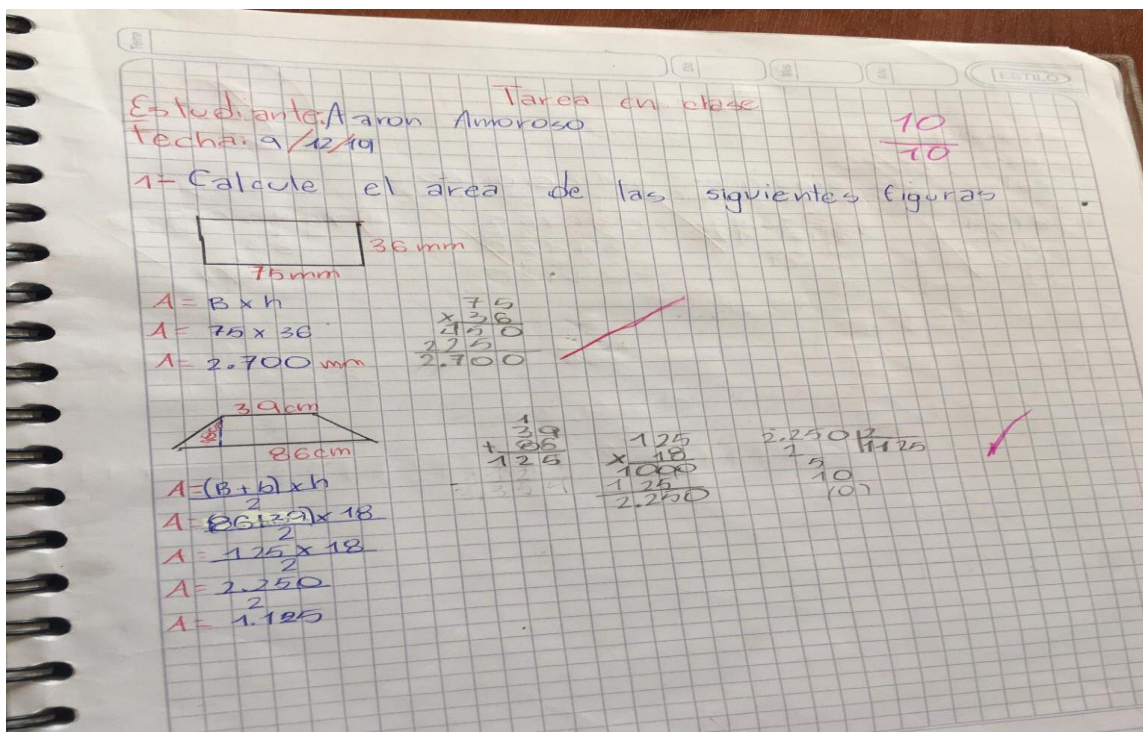 ESTILO
Tarea en clase
Estudiante: Aaron Amoroso
fecha: 9/12/19
10
10
1- Calcule el area de las siguientes figuras
36 mm
75 mm
A = B x h
A = 75 x 36
A = 2.700 mm
75
x 36
450
225
2.700
39cm
86cm
A = (B + b) x h
2
A = 86+39) x 18
2
A = 125 x 18
2
A = 2.250
2
A = 1.125
1
39
+ 86
125
125
x 18
1000
125
2.250
2.250 2
1125
5
10
(0)